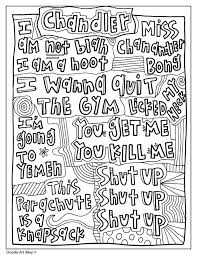 Chandler
I am not blah
I am a hoot
Miss
Chanandler
Bong
I Wanna Quit
The Gym
Licked My
Neck
I'm
going
To
Yemen
You Get Me
You Kill Me
This
Parachute
is a
Knapsack
Shut up
Shut up
Shut up
Doodle Art Alley ©